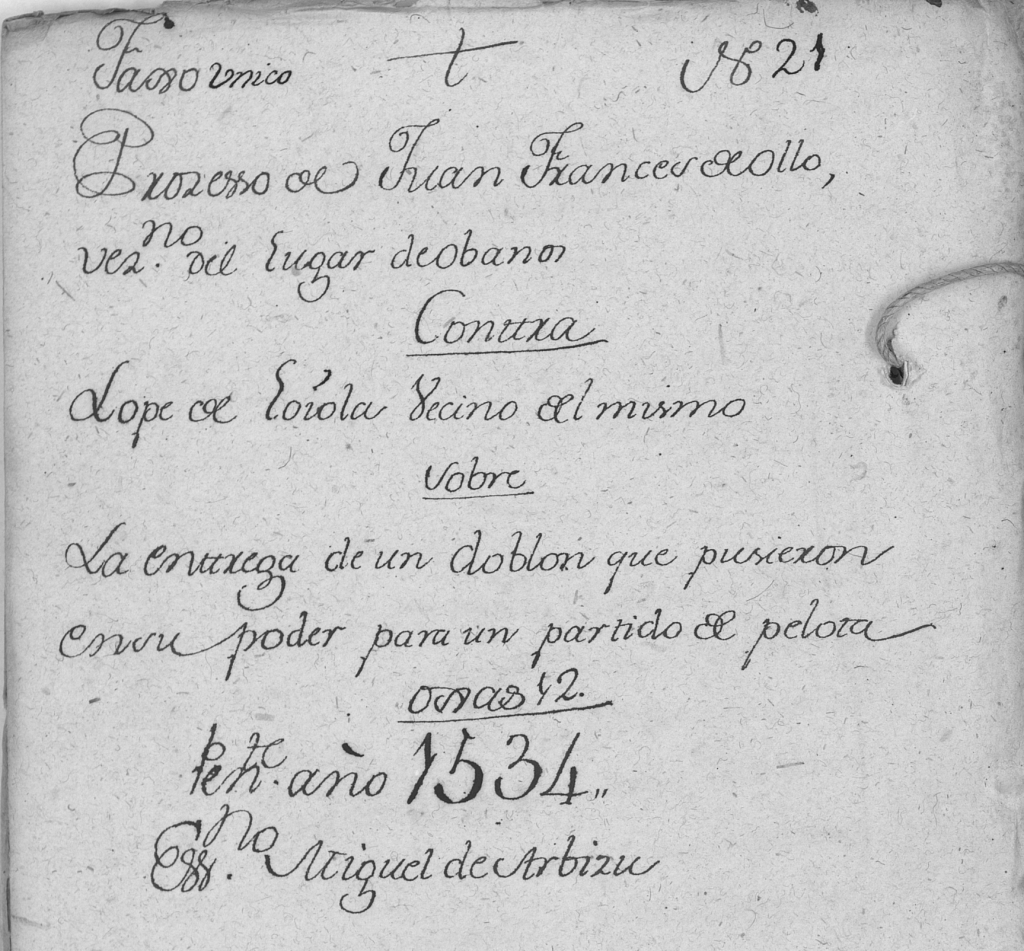 Fasso vnico † Nº 21
Prozesso de Juan Frances de ollo,
vez.no del Lugar de obanos
Conttra
Lope de Loiola Vecino del mismo
Sobre
La enttrega de un doblon que pusieron
en su poder para un partido de pelota
ojas 12.
Pente. año 1534
Ess.no Miguel de Arbizu